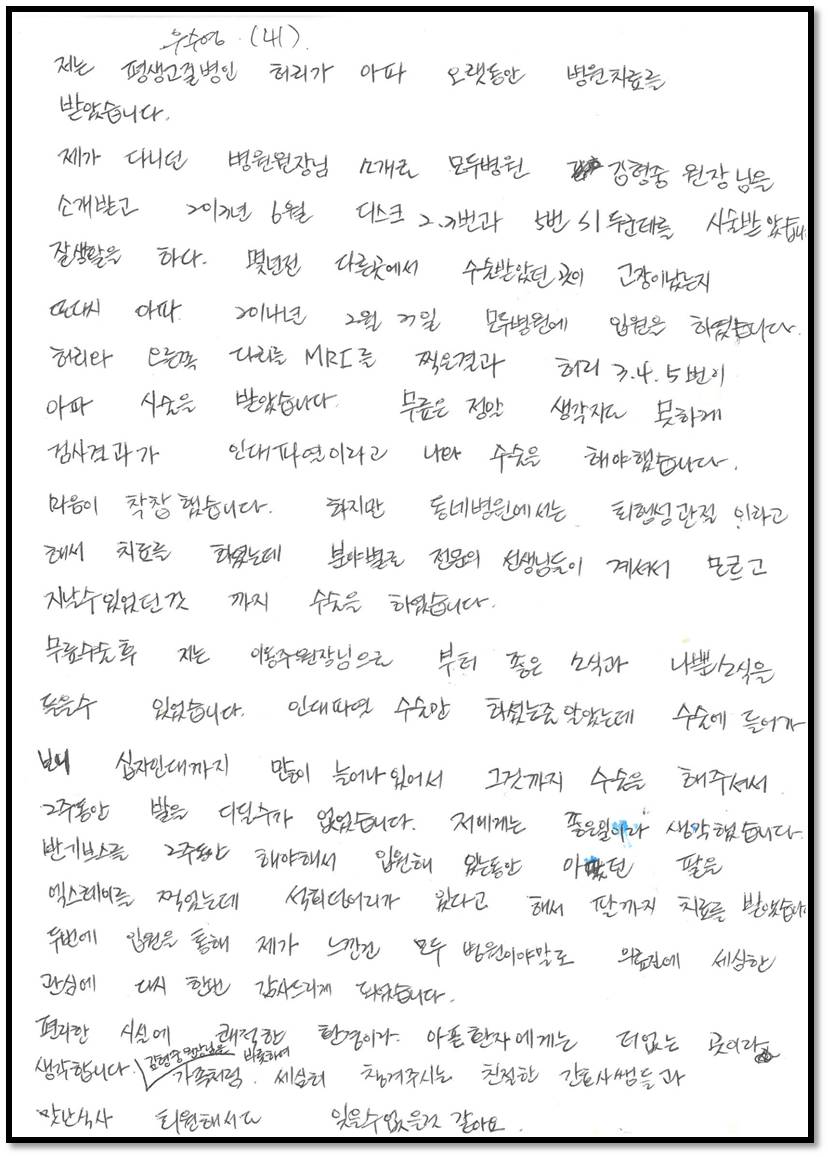 우수영 (네).
저는 평생고질병인 허리가 아파 오랫동안 병원치료를
받았습니다.
제가 다니던 병원원장님 소개로 모두병원 김형중 원장님을
소개받고 2013년 6월 디스크 2.3번과 5번 S1 두군데를 시술받았습니
잘생활을 하다. 몇년전 다른곳에서 수술받았던 곳이 고장이났는지
또다시 아파. 2014년 2월 21일 모두병원에 입원을 하였습니다.
허리와 오른쪽 다리를 MRI를 찍은결과 허리 3.4.5번이
아파 시술을 받았습니다. 무릎은 정말 생각지도 못하게
검사결과가 인대파열이라고 나와 수술을 해야했습니다.
마음이 착찹했습니다. 하지만 동네병원에서는 퇴행성관절이라고
해서 치료를 하였는데 분야별로 전문의 선생님들이 계셔서 모르고
지날수있었던것 까지 수술을 하였습니다.
무릎수술후 저는 이동주원장님으로 부터 좋은 소식과 나쁜소식을
들을수 있었습니다. 인대파열 수술만 하셨는줄알았는데 수술에 들어가
보니 십자인대까지 많이 늘어나있어서 그것까지 수술을 해주셔서
2주동안 발을 디딜수가 없었습니다. 저에게는 좋은일이라 생각했습니다.
반기브스를 2주동안 해야해서 입원해 있는동안 아팠던 팔을
엑스레이를 찍었는데 석회덩어리가 있다고 해서 팔까지 치료를 받았습니다
두번에 입원을 통해 제가 느낀건 모두 병원이야말로 의료진에 세심한
관심에 다시 한번 감사드리게 되었습니다.
편리한 시설에 쾌적한 환경이라. 아픈환자에게는 더없는 곳이라
생각합니다. 김형중원장님을 비롯하여 가족처럼. 세심히 챙겨주시는 친절한 간호사쌤들과
맛난식사 퇴원해서도 잊을수없을것 같아요.